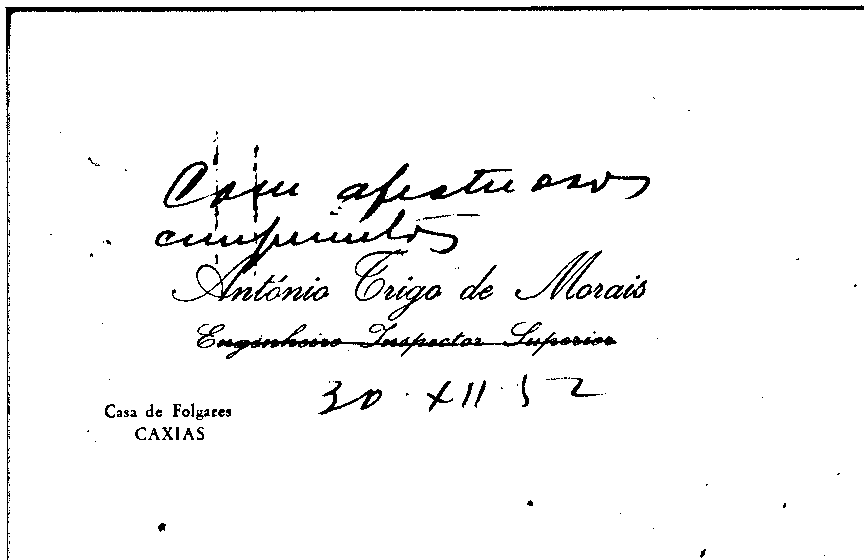 Com afectuosos
cumprimentos
António Trigo de Morais
Engenheiro Inspector Superior
30 · XII · 52
Casa de Folgares
CAXIAS